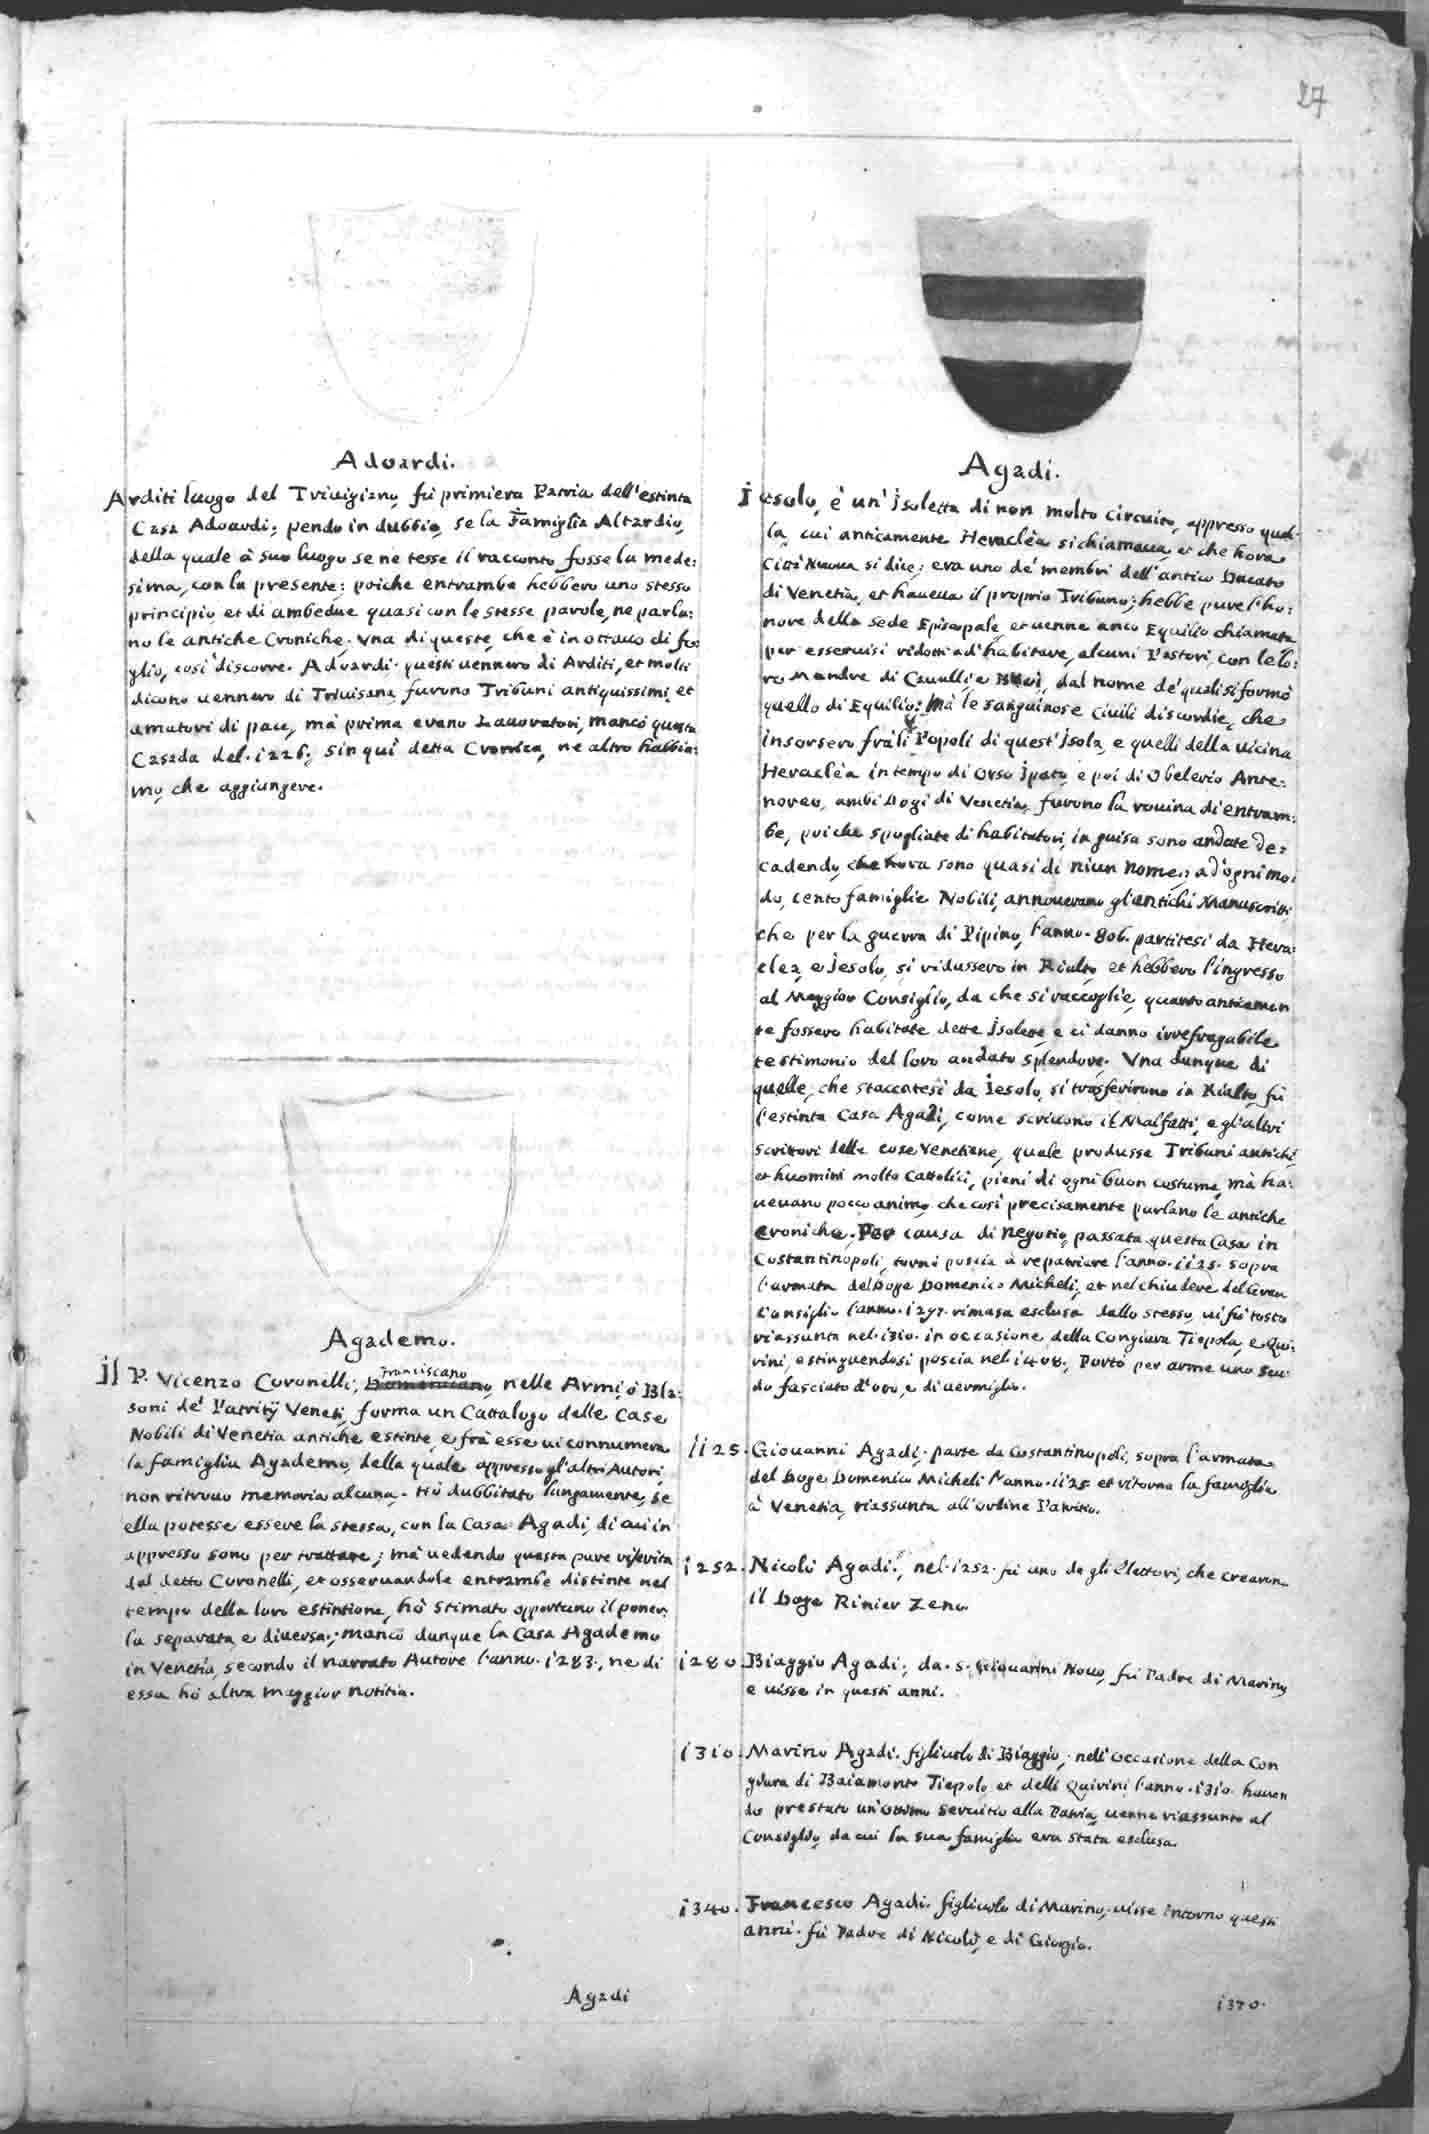 27
Adoardi.
Arditi luogo del Trivigiano, fù primiera Patria dell'estinta
Casa Adoardi; pendo in dubbio, se la Famiglia Altardio,
della quale à suo luogo se ne tesse il racconto, fosse la mede:
sima, con la presente: poiche entrambe hebbero uno stesso
principio, et di ambedue quasi con le stesse parole, ne parla:
no le antiche Croniche. Vna di queste, che è in ottavo di fo:
glio, così discorre. Adoardi. questi uennero di Arditi, et molti
dicono uennero di Triuisana, furono Tribuni antiquissimi, et
amatori di pace, mà prima erano Lauoratori, mancò questa
Casada del. 1226. sin quì detta Cronica, ne altro habbia:
mo, che aggiungere.
Agademo.
Il P. Vicenzo Coronelli, Franciscano, nelle Armi, ò Bla:
soni de' Patritij Veneti, forma un Cattalogo delle Case
Nobili di Venetia antiche estinte, e frà esse ui connumera
la famiglia Agademo, della quale appresso gl'altri Autori,
non ritrouo memoria alcuna. Hò dubbitato lungamente, se
ella potesse essere la stessa, con la Casa Agadi, di cui in
appresso sono per trattare; mà uedendo questa pure riferita
dal detto Coronelli, et osseruandole entrambe distinte nel
tempo della loro estintione, hò stimato opportuno il poner:
la separata, e diuersa; mancò dunque la Casa Agademo
in Venetia, secondo il narrato Autore l'anno. 1283., ne di
essa hò altra maggior notitia.
Agadi
Agadi.
Iesolo, è un'Isoletta di non molto circuito, appresso quel:
la, cui anticamente Heraclèa si chiamaua, et che hora
Città Nuoua si dice; era uno de' membri dell'antico Ducato
di Venetia, et haueua il proprio Tribuno; hebbe pure l'ho:
nore della sede Episcopale, et uenne anco Equilio chiamata
per esseruisi ridotti ad'habitare, alcuni Pastori, con le lo:
ro Mandre di Caualli, e Boui, dal nome de' quali si formò
quello di Equilio: Mà le sanguinose Ciuili discordie, che
insorsero frà li Popoli di quest'Isola, e quelli della uicina
Heraclèa in tempo di Orso Ipato, e poi di Obelerio Ante:
noreo, ambi Dogi di Venetia, furono la rouina di entram:
be, poiche spogliate di habitatori, in guisa sono andate de:
cadendo, che hora sono quasi di niun nome; ad'ogni mo:
do, cento famiglie Nobili, annouerano gl'antichi Manuscritti,
che per la guerra di Pipino, l'anno. 806. partitesi da Hera:
clea, e Jesolo, si ridussero in Rialto, et hebbero l'ingresso
al Maggior Consiglio, da che si raccoglie, quanto anticamen
te fossero habitate dette Isolette, e ci danno irrefragabile
testimonio del loro andato splendore. Vna dunque di
quelle, che staccatesi da Iesolo, si trasferirono in Rialto, fù
l'estinta Casa Agadi, come scriuono il Malfatti, e gl'altri
scrittori delle cose Venetiane, quale produsse Tribuni antichi,
et huomini molto Cattolici, pieni di ogni buon costume, mà ha:
ueuano pocco animo, che così precisamente parlano le antiche
croniche. Per causa di negotio, passata questa Casa in
Costantinopoli, tornò poscia à repatriare l'anno. 1125. sopra
l'armata del Doge Domenico Micheli, et nel chiudere del Gran
Consiglio l'anno. 1297. rimasa esclusa dallo stesso, ui fù tosto
riassunta nel. 1310. in occasione della Congiura Tiepola, e Qui:
rini, estinguendosi poscia nel. 1408. Portò per arme uno Scu:
do fasciato d'oro, e di uermiglio.
1125. Giouanni Agadi, parte da Costantinopoli, sopra l'armata
del Doge Domenico Micheli l'anno. 1125. et ritorna la famiglia
à Venetia, riassunta all'ordine Patritio.
1252. Nicolò Agadi, nel. 1252. fù uno de gli Elettori, che crearono
il Doge Rinier Zeno.
1280. Biaggio Agadi, da. S. Giouanni Nouo, fù Padre di Marino,
e uisse in questi anni.
1310. Marino Agadi. figliuolo di Biaggio, nell'occasione della Con
giura di Baiamonte Tiepolo, et delli Quirini l'anno. 1310. hauen
do prestato un'ottimo seruitio alla Patria, uenne riassunto al
Consiglio, da cui la sua famiglia era stata esclusa.
1340. Francesco Agadi. figliuolo di Marino, uisse intorno questi
anni. fù Padre di Nicolò, e di Giorgio.
1370.